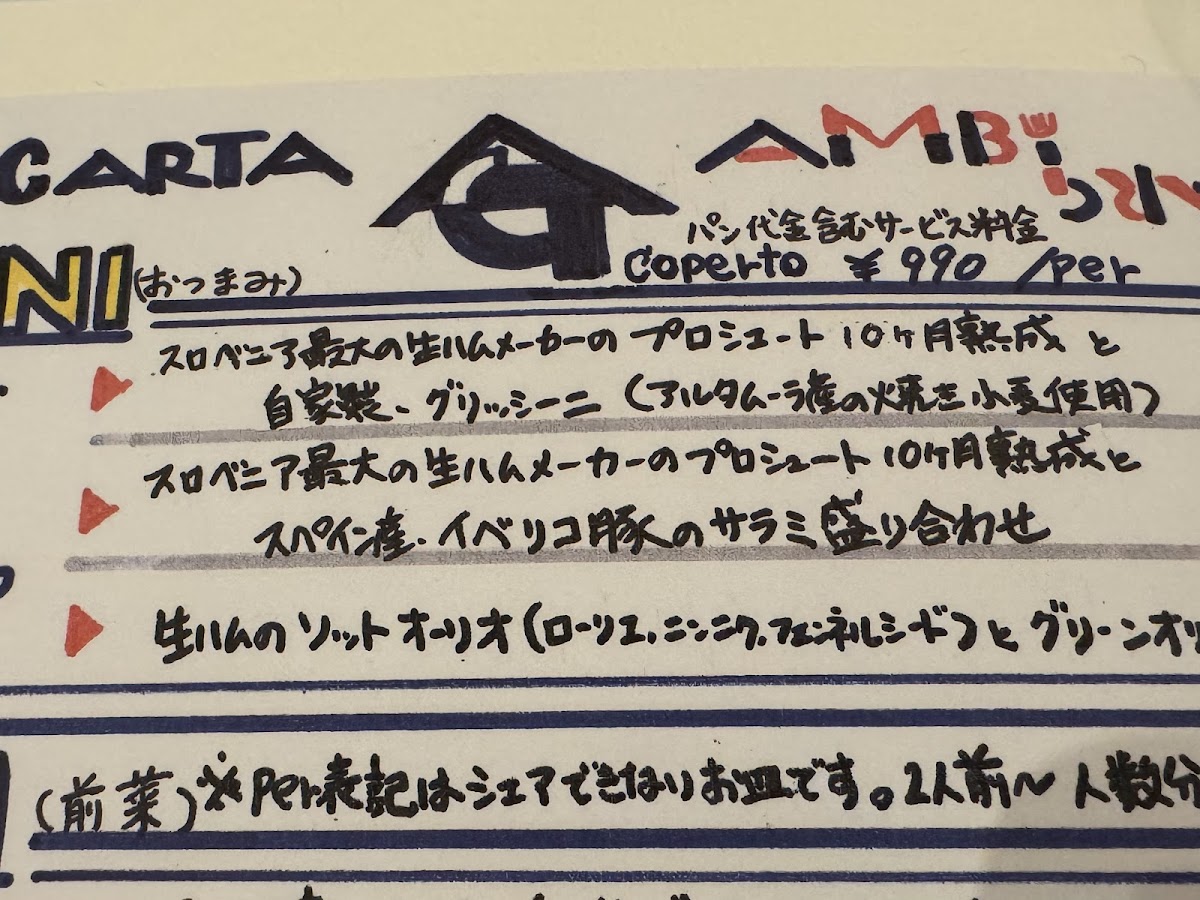 CARTA
AMBi
パン代金含むサービス料金
Coperto ¥990 /per
NI (おつまみ)
スロベニア最大の生ハムメーカーのプロシュート 10ヶ月熟成と
自家製、グリッシーニ (アルタムーラ産の焼き小麦使用)
スロベニア最大の生ハムメーカーのプロシュート 10ヶ月熟成と
スペイン産、イベリコ豚のサラミ盛り合わせ
生ハムのソットオーリオ(ローリエ、ニンニク、フェンネルシード)とグリーンオリ
(前菜) ※per表記はシェアできないお皿です。2人前〜人数分